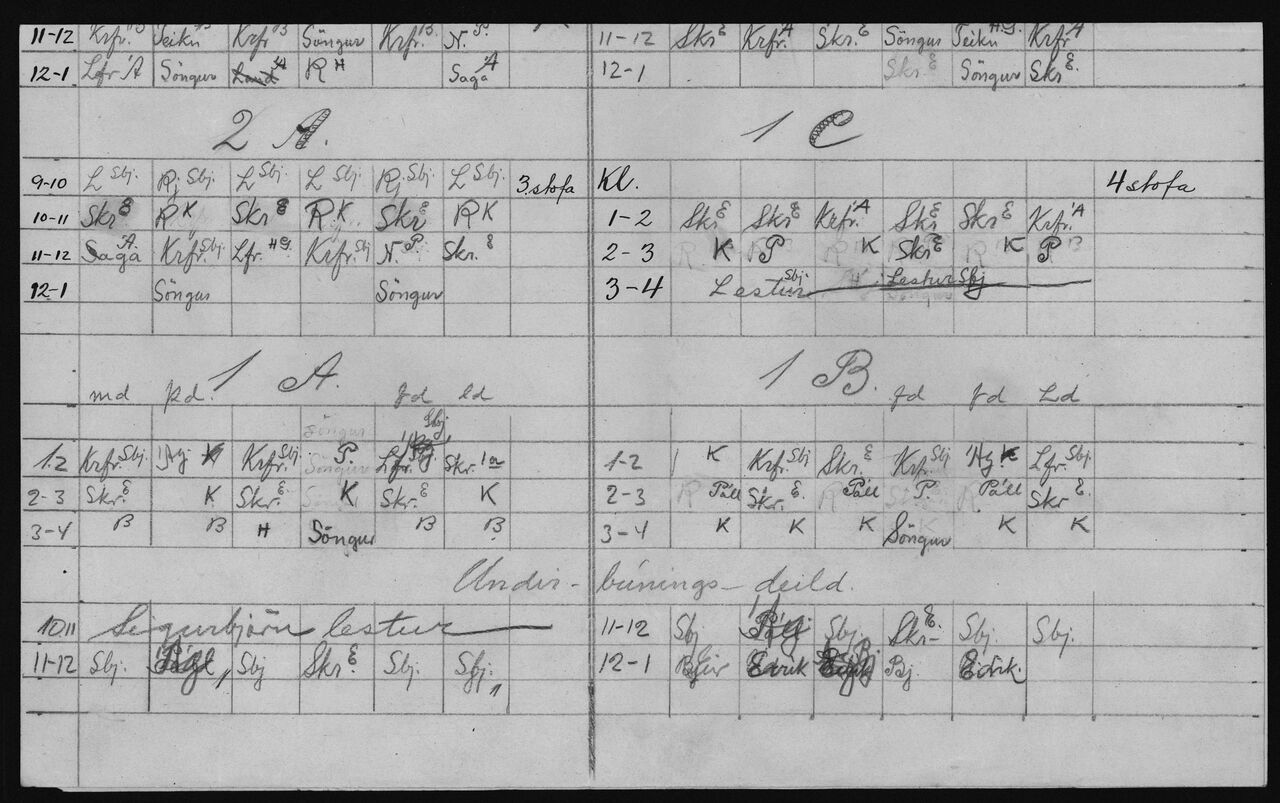 11-12 Krfr. B Teikn Krfr B Söngur Krfr. B N. P.
12-1 Lfr A Söngur Land A R H Saga A
11-12 Skr E Krfr. A Skr. E Söngur Teikn H.G. Krfr. A
12-1 Skr. E Söngur Skr E.
2 A.
9-10 L Sbj. Rj Sbj. L Sbj. L Sbj. Rj Sbj. L Sbj. 3. stofa
10-11 Skr E R K Skr E R K Skr E R K
11-12 Saga A. Krfr. Sbj. Lfr. H.G. Krfr. Sbj N. P. Skr. E
12-1 Söngur Söngur
1 C
Kl. 4 stofa
1-2 Skr E Skr E Krfr. A Skr E Skr E Krfr. A
2-3 R K P R K Skr E R K P B
3-4 Lestur Sbj. Lestur Sbj
1 A.
md þd. fd ld
1-2 Krfr. Sbj. K Krfr. Sbj. Söngur P. Lfr. Sbj. Skr.
2-3 Skr. E K Skr. E. K Skr E K
3-4 B B H Söngur B B
1 B.
fd fd Ld
1-2 K Krfr. Sbj Skr. E Krfr. Sbj K Lfr. Sbj.
2-3 R Páll Skr. E. R Páll P. R Páll Skr. E.
3-4 K K K Söngur K K
Undir- búnings- deild.
10 11 Sigurbjörn lestur
11-12 Sbj. Sbj Skr. E Sbj. Sbj.
11-12 Sbj Sbj. Skr- E. Sbj. Sbj.
12-1 Edrik Bj. Edrik.